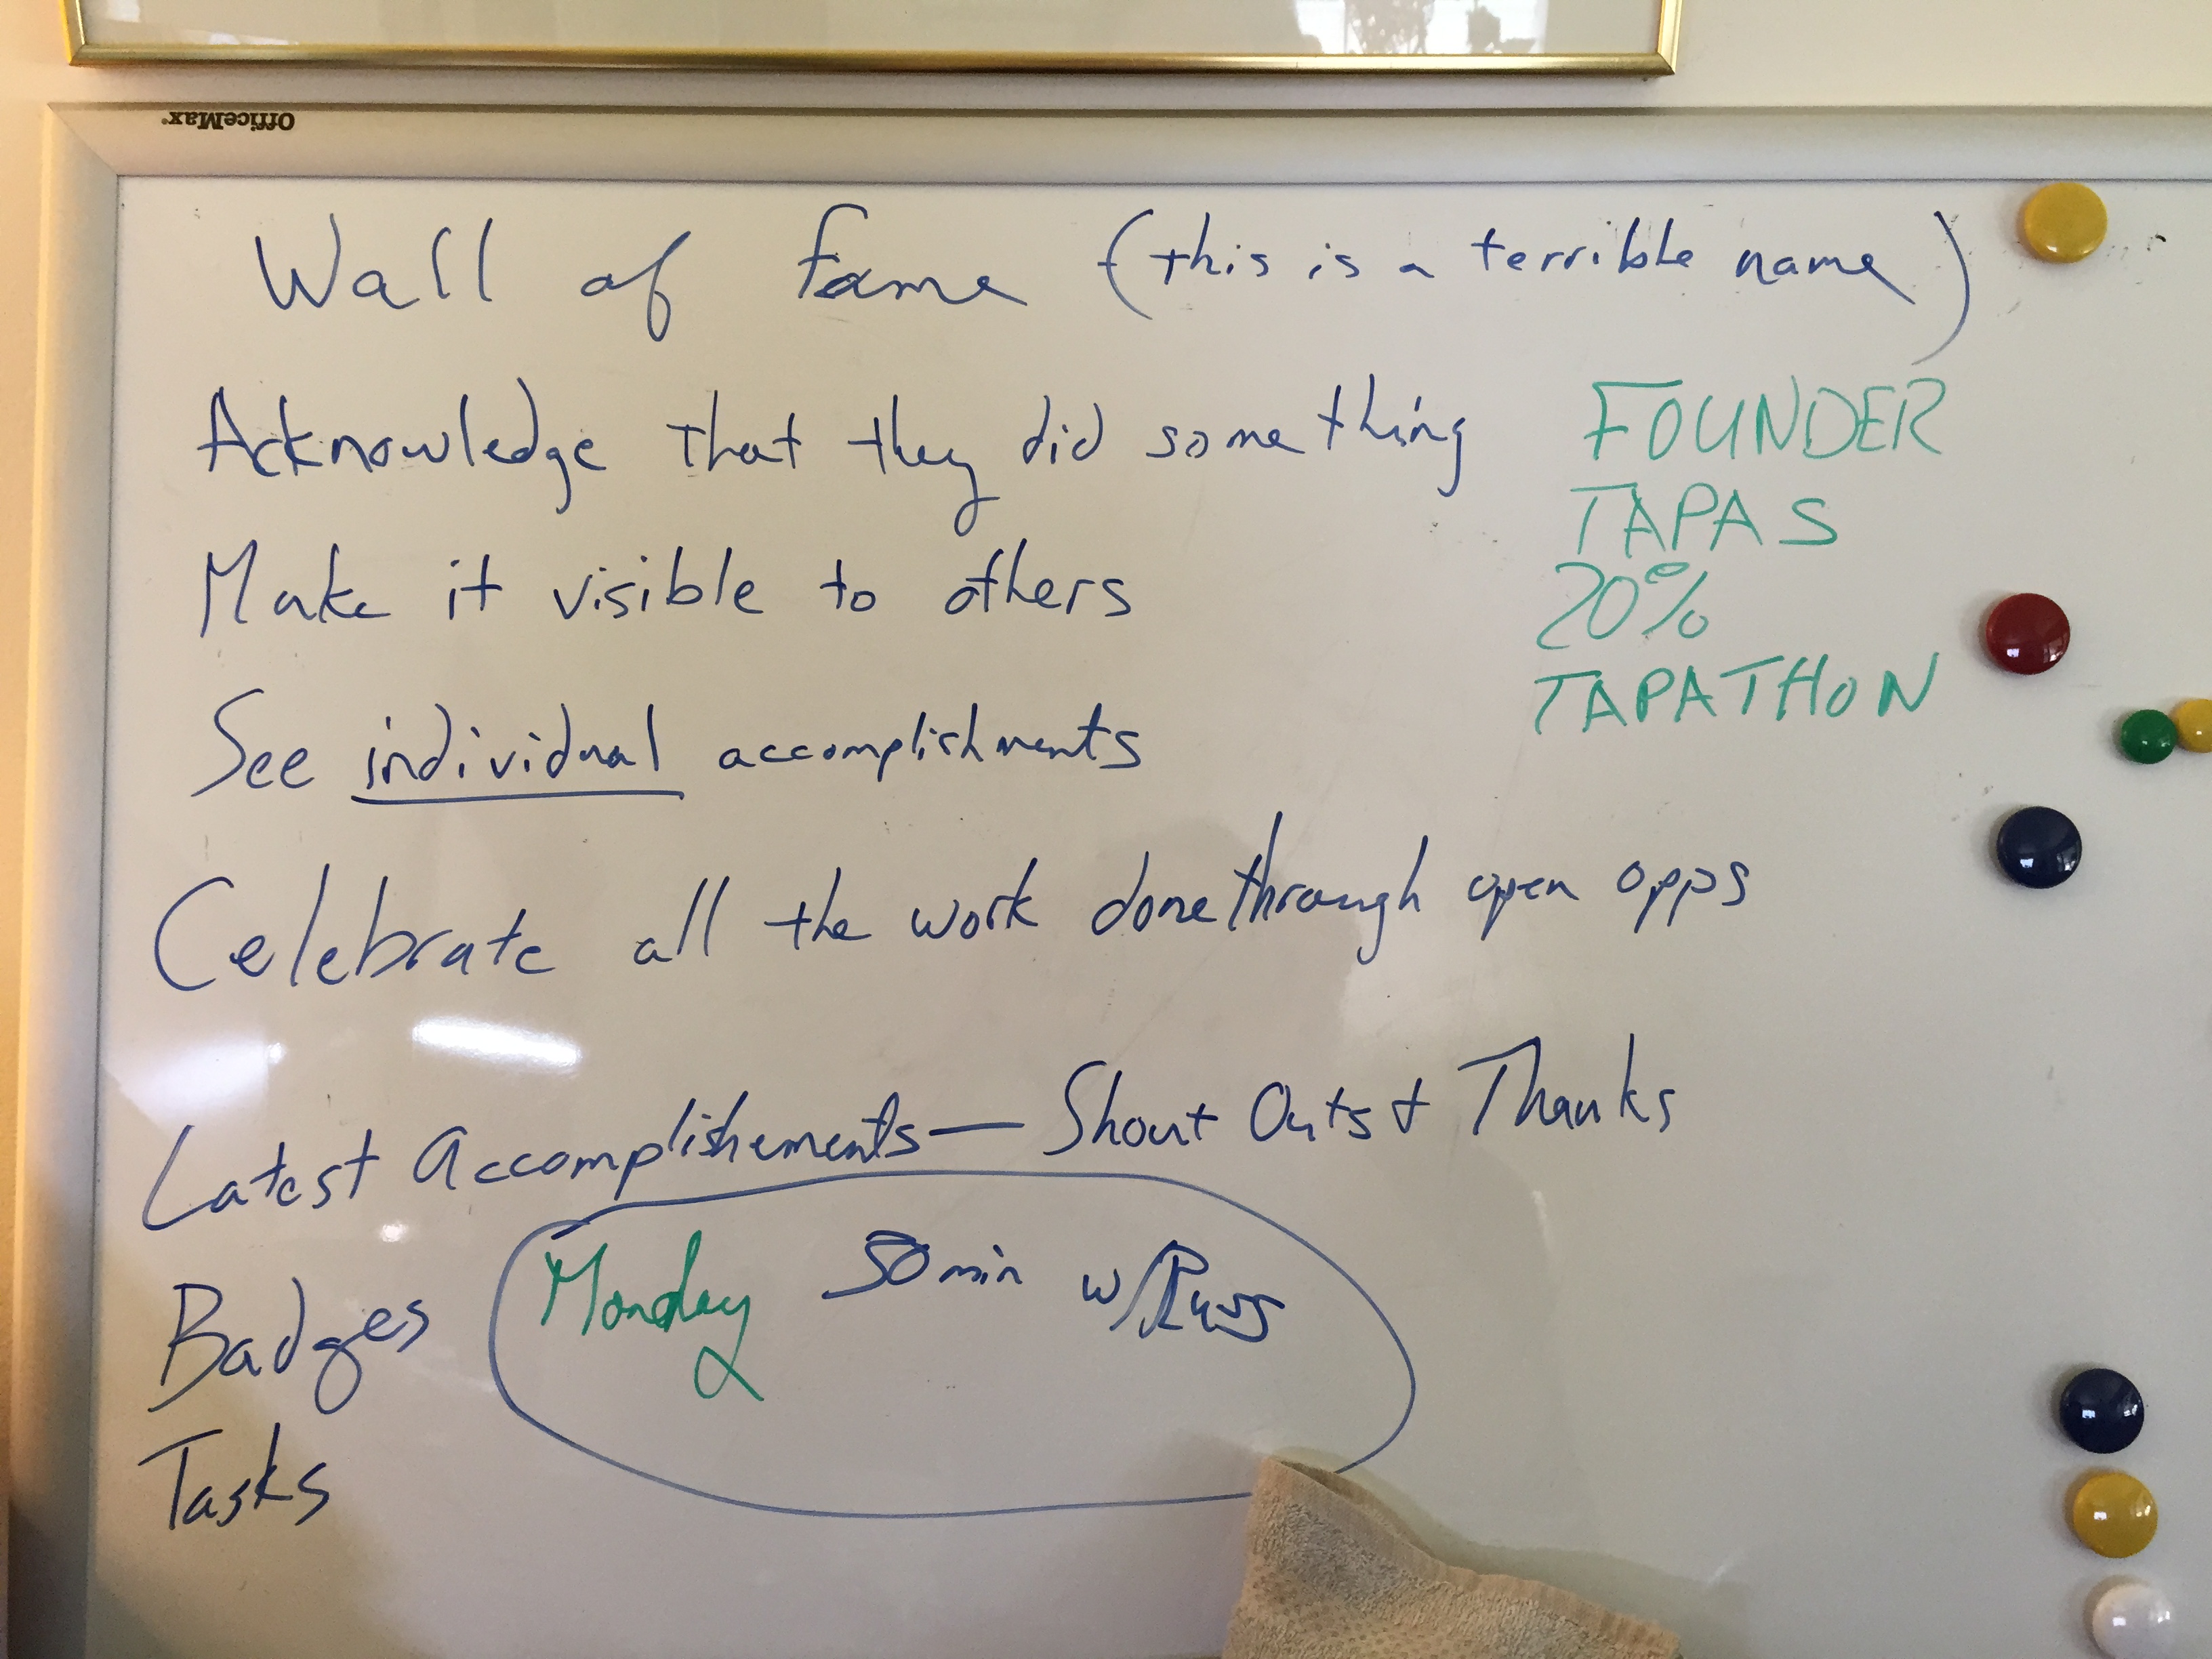 OfficeMax
Wall of Fame (this is a terrible name)
Acknowledge that they did something
Make it visible to others
See individual accomplishments
FOUNDER
TAPAS
20%
TAPATHON
Celebrate all the work done through open opps
Latest Accomplishements — Shout Outs + Thanks
Badges
Monday 50 min w/Russ
Tasks